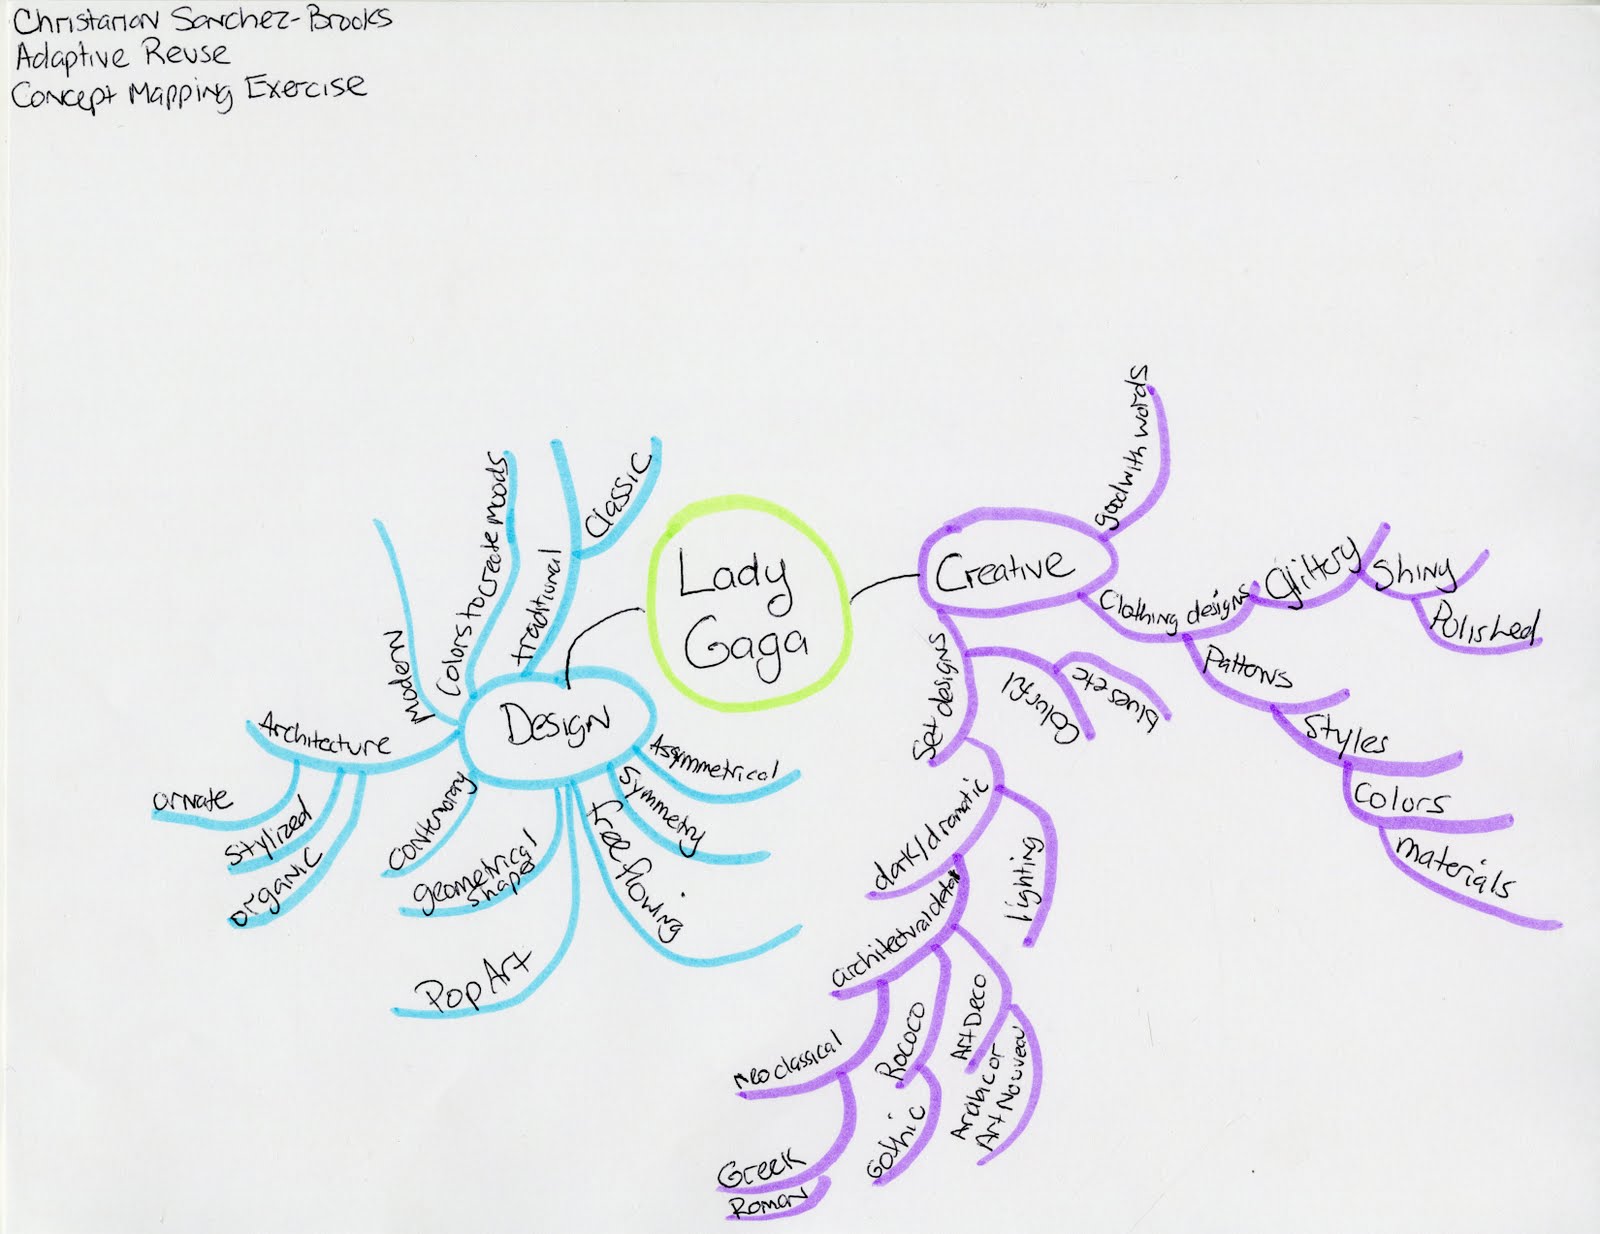 Christarion Sanchez-Brooks
Adaptive Reuse
Concept Mapping Exercise
Lady
Gaga
Design
Modern
Colors to create moods
traditional
Classic
Architecture
ornate
Stylized
organic
Contemporary
geometrical
shapes
Pop Art
free flowing
Symmetry
Assymmetrical
Creative
good with words
Clothing designs
Glittery
Shiny
Polished
Patterns
Styles
Colors
materials
Set designs
Colorful
blues etc
dark/dramatic
lighting
architectural detail
neoclassical
Greek
Roman
Rococo
Gothic
Art Deco
Arabic or
Art Nouveau